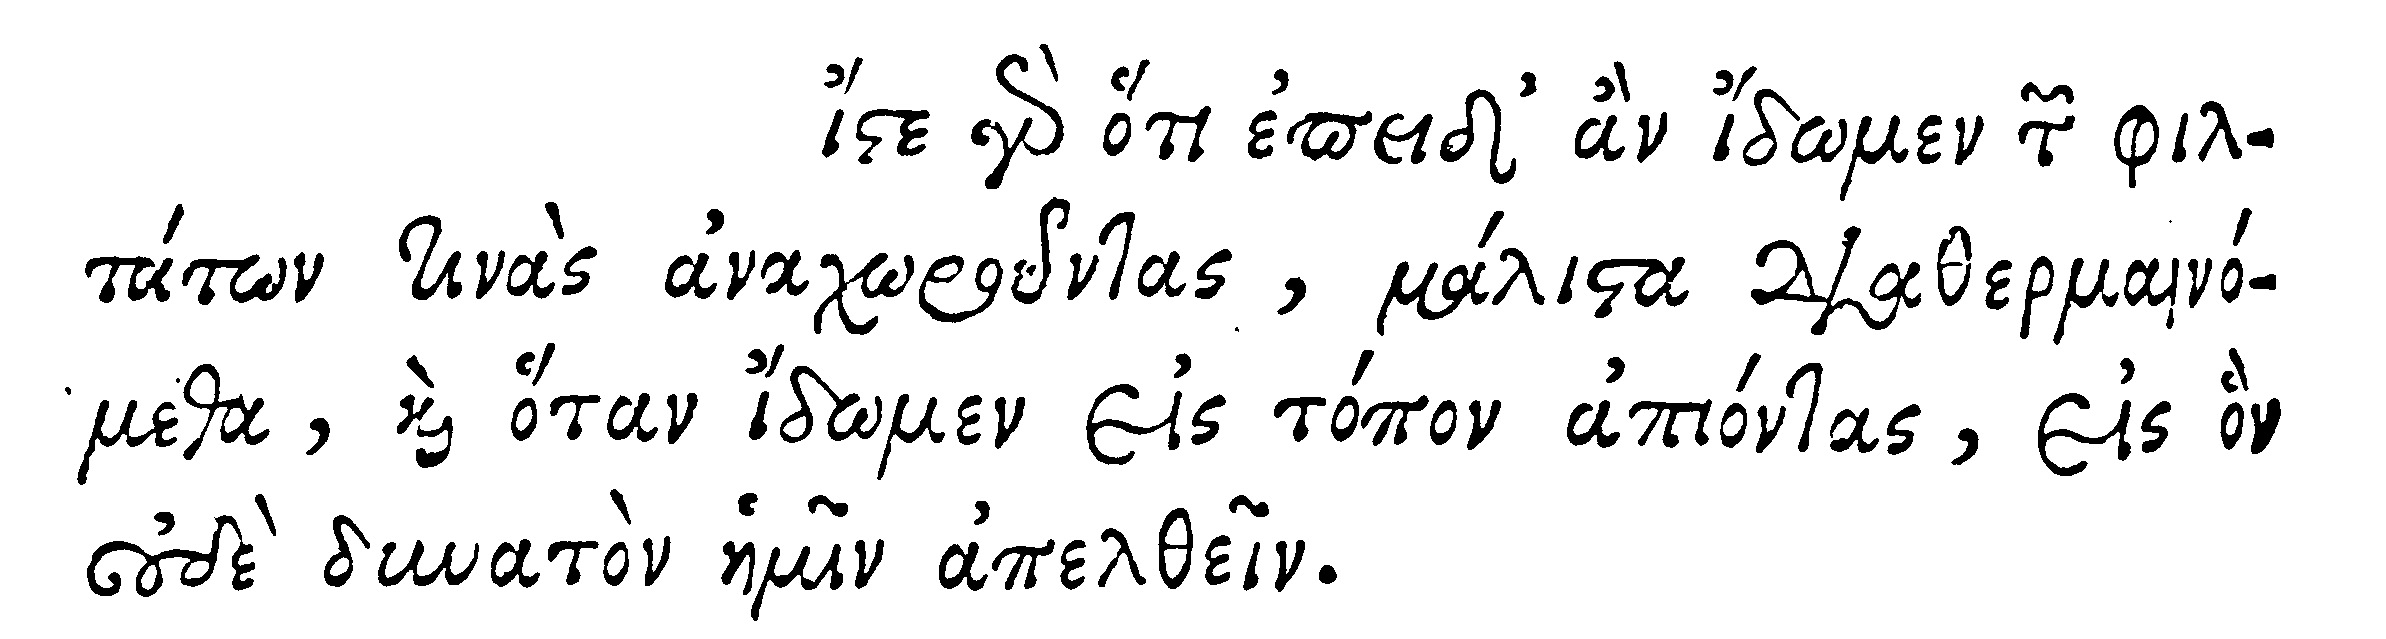 ἴστε γὰρ ὅτι ἐπειδ’ ἂν ἴδωμεν τῶν φιλ-
τάτων τινὰς ἀναχωροῦντας, μάλιστα διαθερμαινό-
μεθα, καὶ ὅταν ἴδωμεν εἰς τόπον ἀπιόντας, εἰς ὃν
οὐδὲ δυνατὸν ἡμῖν ἀπελθεῖν.